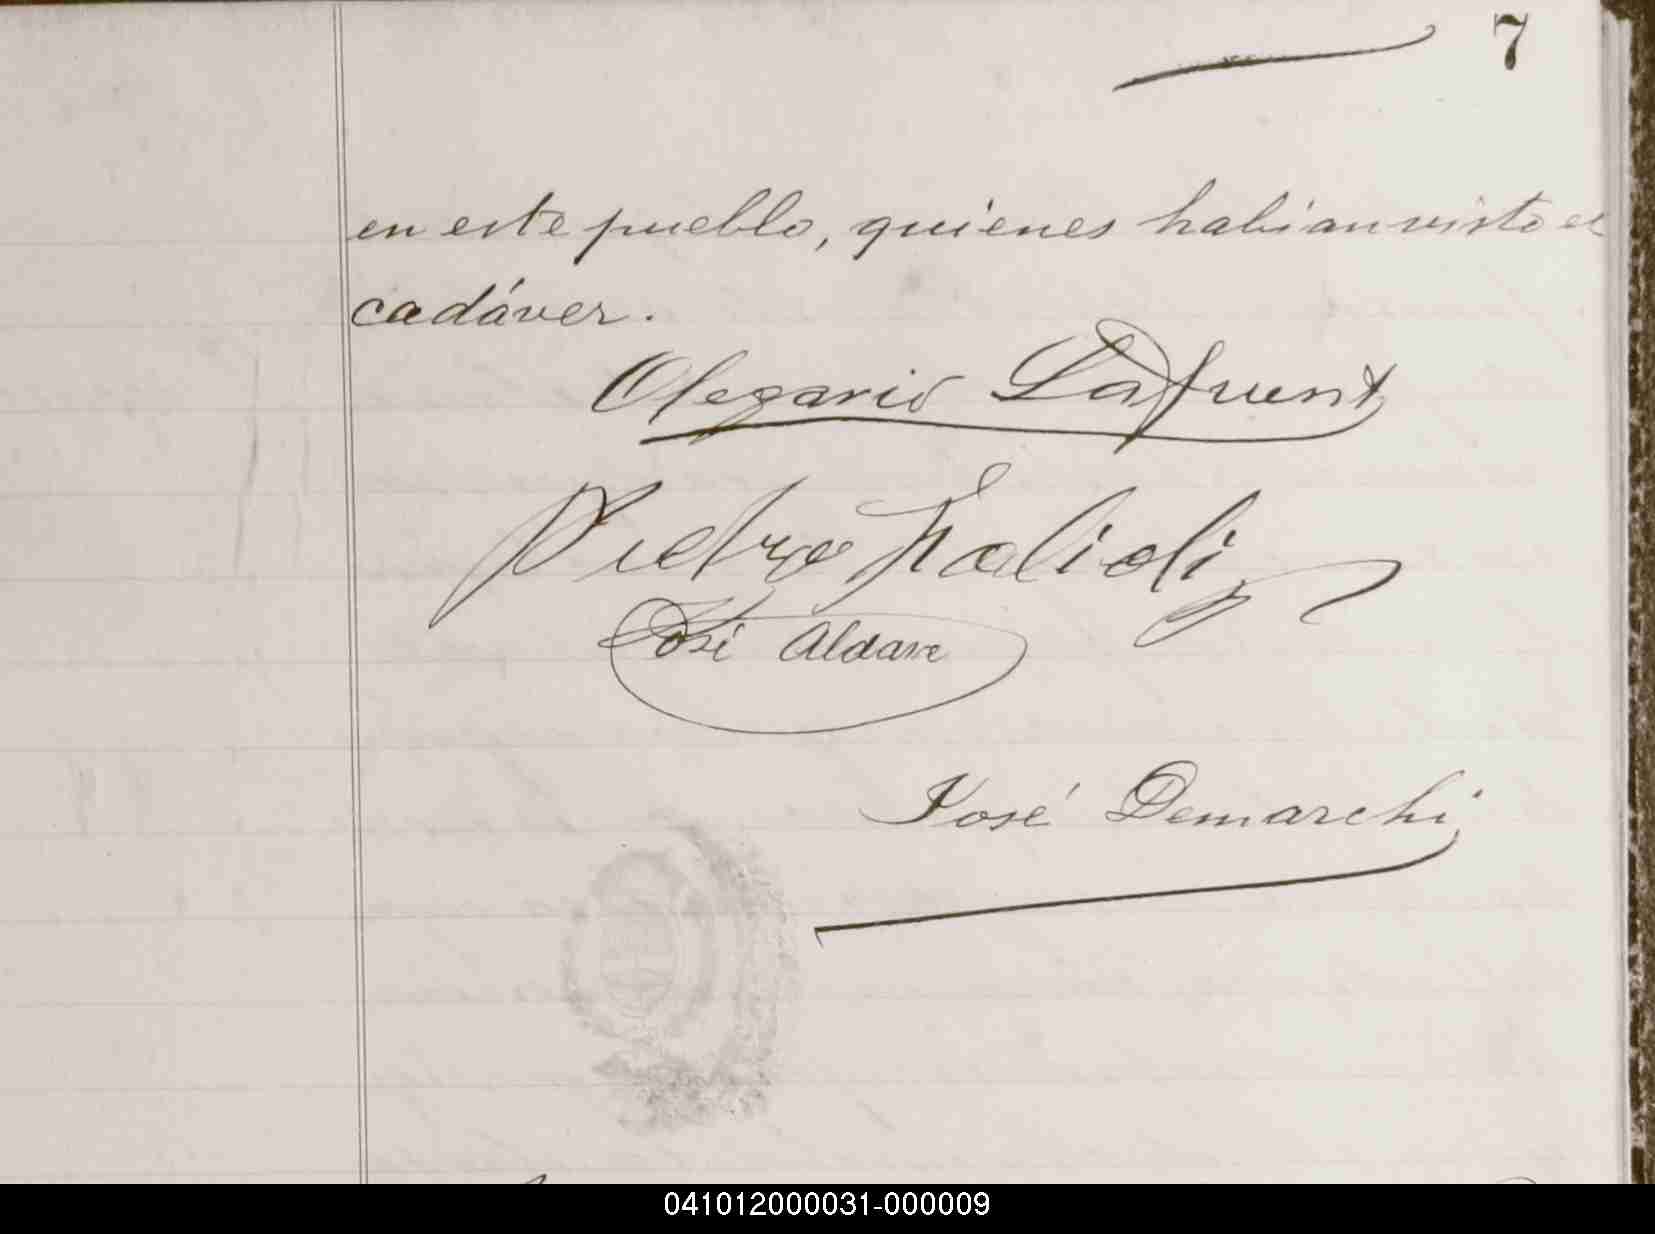 7
en este pueblo, quienes habian visto el
cadáver.
Olegario Lafuent
Pietro
José Aldave
José Demarchi
041012000031-000009